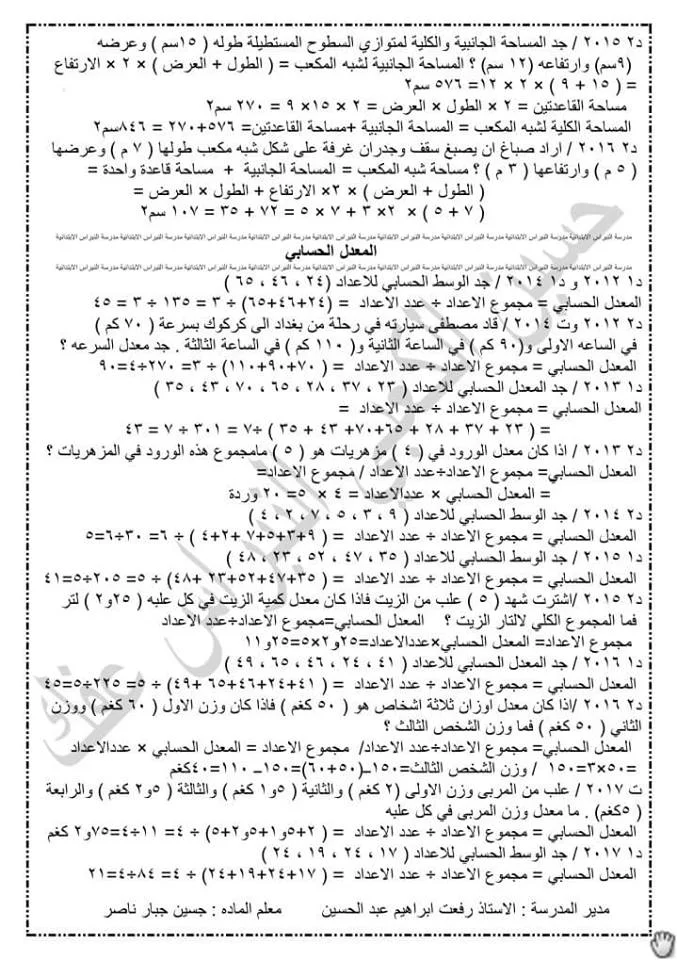 د٢ ٢٠١٥ / جد المساحة الجانبية والكلية لمتوازي السطوح المستطيلة طوله ( ١٥سم ) وعرضه
(٩سم) وارتفاعه (١٢ سم) ؟ المساحة الجانبية لشبه المكعب = ( الطول + العرض ) × ٢ × الارتفاع
= ( ١٥ + ٩ ) × ٢ × ١٢= ٥٧٦ سم٢
مساحة القاعدتين = ٢ × الطول × العرض = ٢ × ١٥× ٩ = ٢٧٠ سم٢
المساحة الكلية لشبه المكعب = المساحة الجانبية +مساحة القاعدتين= ٥٧٦+٢٧٠ = ٨٤٦سم٢
د٢ ٢٠١٦ / اراد صباغ ان يصبغ سقف وجدران غرفة على شكل شبه مكعب طولها ( ٧ م ) وعرضها
( ٥ م ) وارتفاعها ( ٣ م ) ؟ مساحة شبه المكعب = المساحة الجانبية + مساحة قاعدة واحدة =
( الطول + العرض ) × ٢× الارتفاع + الطول × العرض =
( ٧ + ٥ ) × ٢× ٣ + ٧ × ٥ = ٧٢ + ٣٥ = ١٠٧ سم٢
مدرسة النبراس الابتدائية مدرسة النبراس الابتدائية مدرسة النبراس الابتدائية مدرسة النبراس الابتدائية مدرسة النبراس الابتدائية مدرسة النبراس الابتدائية
المعدل الحسابي
مدرسة النبراس الابتدائية مدرسة النبراس الابتدائية مدرسة النبراس الابتدائية مدرسة النبراس الابتدائية مدرسة النبراس الابتدائية مدرسة النبراس الابتدائية
د١ ٢٠١٢ و د١ ٢٠١٤ / جد الوسط الحسابي للاعداد (٢٤ ، ٤٦ ، ٦٥ )
المعدل الحسابي = مجموع الاعداد ÷ عدد الاعداد = (٢٤+٤٦+٦٥) ÷ ٣ = ١٣٥ ÷ ٣ = ٤٥
د٢ ٢٠١٢ وت ٢٠١٤ / قاد مصطفى سيارته في رحلة من بغداد الى كركوك بسرعة ( ٧٠ كم )
في الساعه الاولى و(٩٠ كم ) في الساعة الثانية و( ١١٠ كم ) في الساعة الثالثة . جد معدل السرعه ؟
المعدل الحسابي = مجموع الاعداد ÷ عدد الاعداد = ( ٧٠+٩٠+١١٠) ÷ ٣= ٢٧٠÷٤=٩٠
د١ ٢٠١٣ / جد المعدل الحسابي للاعداد ( ٢٣ ، ٣٧ ، ٢٨ ، ٦٥ ، ٧٠ ، ٤٣ ، ٣٥ )
المعدل الحسابي = مجموع الاعداد ÷ عدد الاعداد =
= ( ٢٣ + ٣٧ + ٢٨ + ٦٥+٧٠+ ٤٣ + ٣٥ ) ÷٧ = ٣٠١ ÷ ٧ = ٤٣
د٢ ٢٠١٣ / اذا كان معدل الورود في ( ٤ ) مزهريات هو ( ٥ ) مامجموع هذه الورود في المزهريات ؟
المعدل الحسابي= مجموع الاعداد÷عدد الاعداد / مجموع الاعداد=
= المعدل الحسابي × عددالاعداد = ٤ × ٥= ٢٠ وردة
د٢ ٢٠١٤ / جد الوسط الحسابي للاعداد ( ٩ ، ٣ ، ٥ ، ٧ ، ٢ ، ٤ )
المعدل الحسابي = مجموع الاعداد ÷ عدد الاعداد = ( ٩+٣+٥+٧ +٢+٤ ) ÷ ٦= ٣٠÷٦=٥
د١ ٢٠١٥ / جد الوسط الحسابي للاعداد ( ٣٥ ، ٤٧ ، ٥٢ ، ٢٣ ، ٤٨ )
المعدل الحسابي = مجموع الاعداد ÷ عدد الاعداد = ( ٣٥+٤٧+٥٢+٢٣ +٤٨) ÷ ٥= ٢٠٥÷٥=٤١
د٢ ٢٠١٥ /اشترت شهد ( ٥ ) علب من الزيت فاذا كان معدل كمية الزيت في كل علبه ( ٢٥و٢ ) لتر
فما المجموع الكلي لالتار الزيت ؟ المعدل الحسابي=مجموع الاعداد÷عدد الاعداد
مجموع الاعداد= المعدل الحسابي×عددالاعداد=٢٥و٢×٥=٢٥و١١
د١ ٢٠١٦ / جد المعدل الحسابي للاعداد ( ٤١ ، ٢٤ ، ٤٦ ، ٦٥ ، ٤٩ )
المعدل الحسابي = مجموع الاعداد ÷ عدد الاعداد = ( ٤١+٢٤+٤٦+٦٥ +٤٩) ÷ ٥= ٢٢٥÷٥=٤٥
د٢ ٢٠١٦ /اذا كان معدل اوزان ثلاثة اشخاص هو ( ٥٠ كغم ) فاذا كان وزن الاول ( ٦٠ كغم ) ووزن
الثاني ( ٥٠ كغم ) فما وزن الشخص الثالث ؟
المعدل الحسابي= مجموع الاعداد÷عدد الاعداد/ مجموع الاعداد = المعدل الحسابي × عددالاعداد
=٥٠×٣=١٥٠ / وزن الشخص الثالث=١٥٠ـ(٥٠+٦٠)=١٥٠ـ ١١٠=٤٠كغم
ت ٢٠١٧ / علب من المربى وزن الاولى (٢ كغم ) والثانية ( ٥و١ كغم ) والثالثة ( ٥و٢ كغم ) والرابعة
( ٥كغم) . ما معدل وزن المربى في كل علبه
المعدل الحسابي = مجموع الاعداد ÷ عدد الاعداد = ( ٢+٥و١+٥و٢+٥) ÷ ٤= ١١÷٤=٧٥و٢ كغم
د١ ٢٠١٧ / جد الوسط الحسابي للاعداد ( ١٧ ، ٢٤ ، ١٩ ، ٢٤ )
المعدل الحسابي = مجموع الاعداد ÷ عدد الاعداد = ( ١٧+٢٤+١٩+٢٤) ÷ ٤= ٨٤÷٤=٢١
مدير المدرسة : الاستاذ رفعت ابراهيم عبد الحسين معلم الماده : حسين جبار ناصر